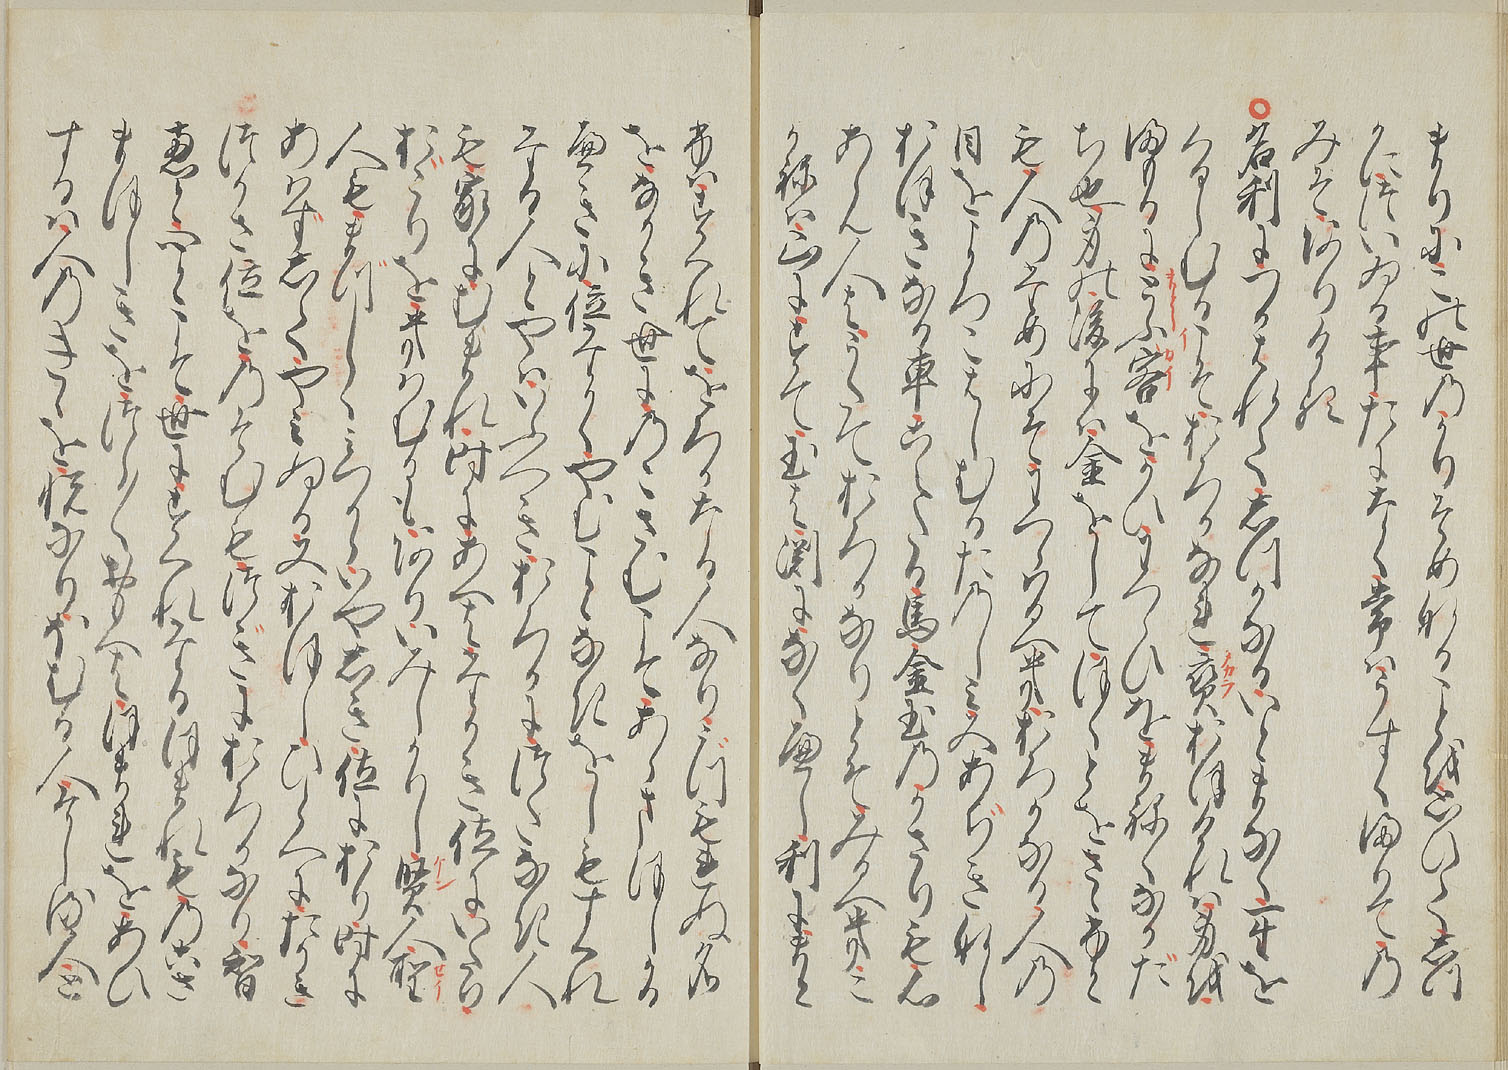 まりにこの世のかりそめなることを思ひてしつ
かについゐる事たになく常はうすくまりての
みそありける
名利につかはれてしつかなるいとまなく一生を
くるしむるこそおろかなれ寳おほけれは身を
まもるにまとふ害をかひわつらひをまねくなかだ
ち也身の後には金をしてほくとをささふと
も人のためにそわつらはるへきおろかなる人の
目をよろこはしむるたのしみ又あぢきなし
おほきなる車こえたる馬金玉のかさりも心
あらん人はうたておろかなりとそみるへきこ
かねは山にすてて玉は渕になくへし利にまと
ふはすくれておろかなる人なりうづもれぬ名
をなかき世にのこさむこそあらまほしかる
へきに位たかくやむことなきをしもすくれ
たる人とやはいふへきおろかにつたなき人
も家にむまれ時にあへはたかき位にいたり
おごりをきはむるもありいみしかりし賢人聖
人もまづしくみつからいやしき位におり時に
あはずしてやみぬる又おほしひとへにたかき
つかさ位をのそむもつぎにおろかなり智
恵と心とこそ世にすくれたるほまれものこさ
まほしきをつらつらおもへはほまれをあひ
するは人のききを悦なりほむる人そしる人